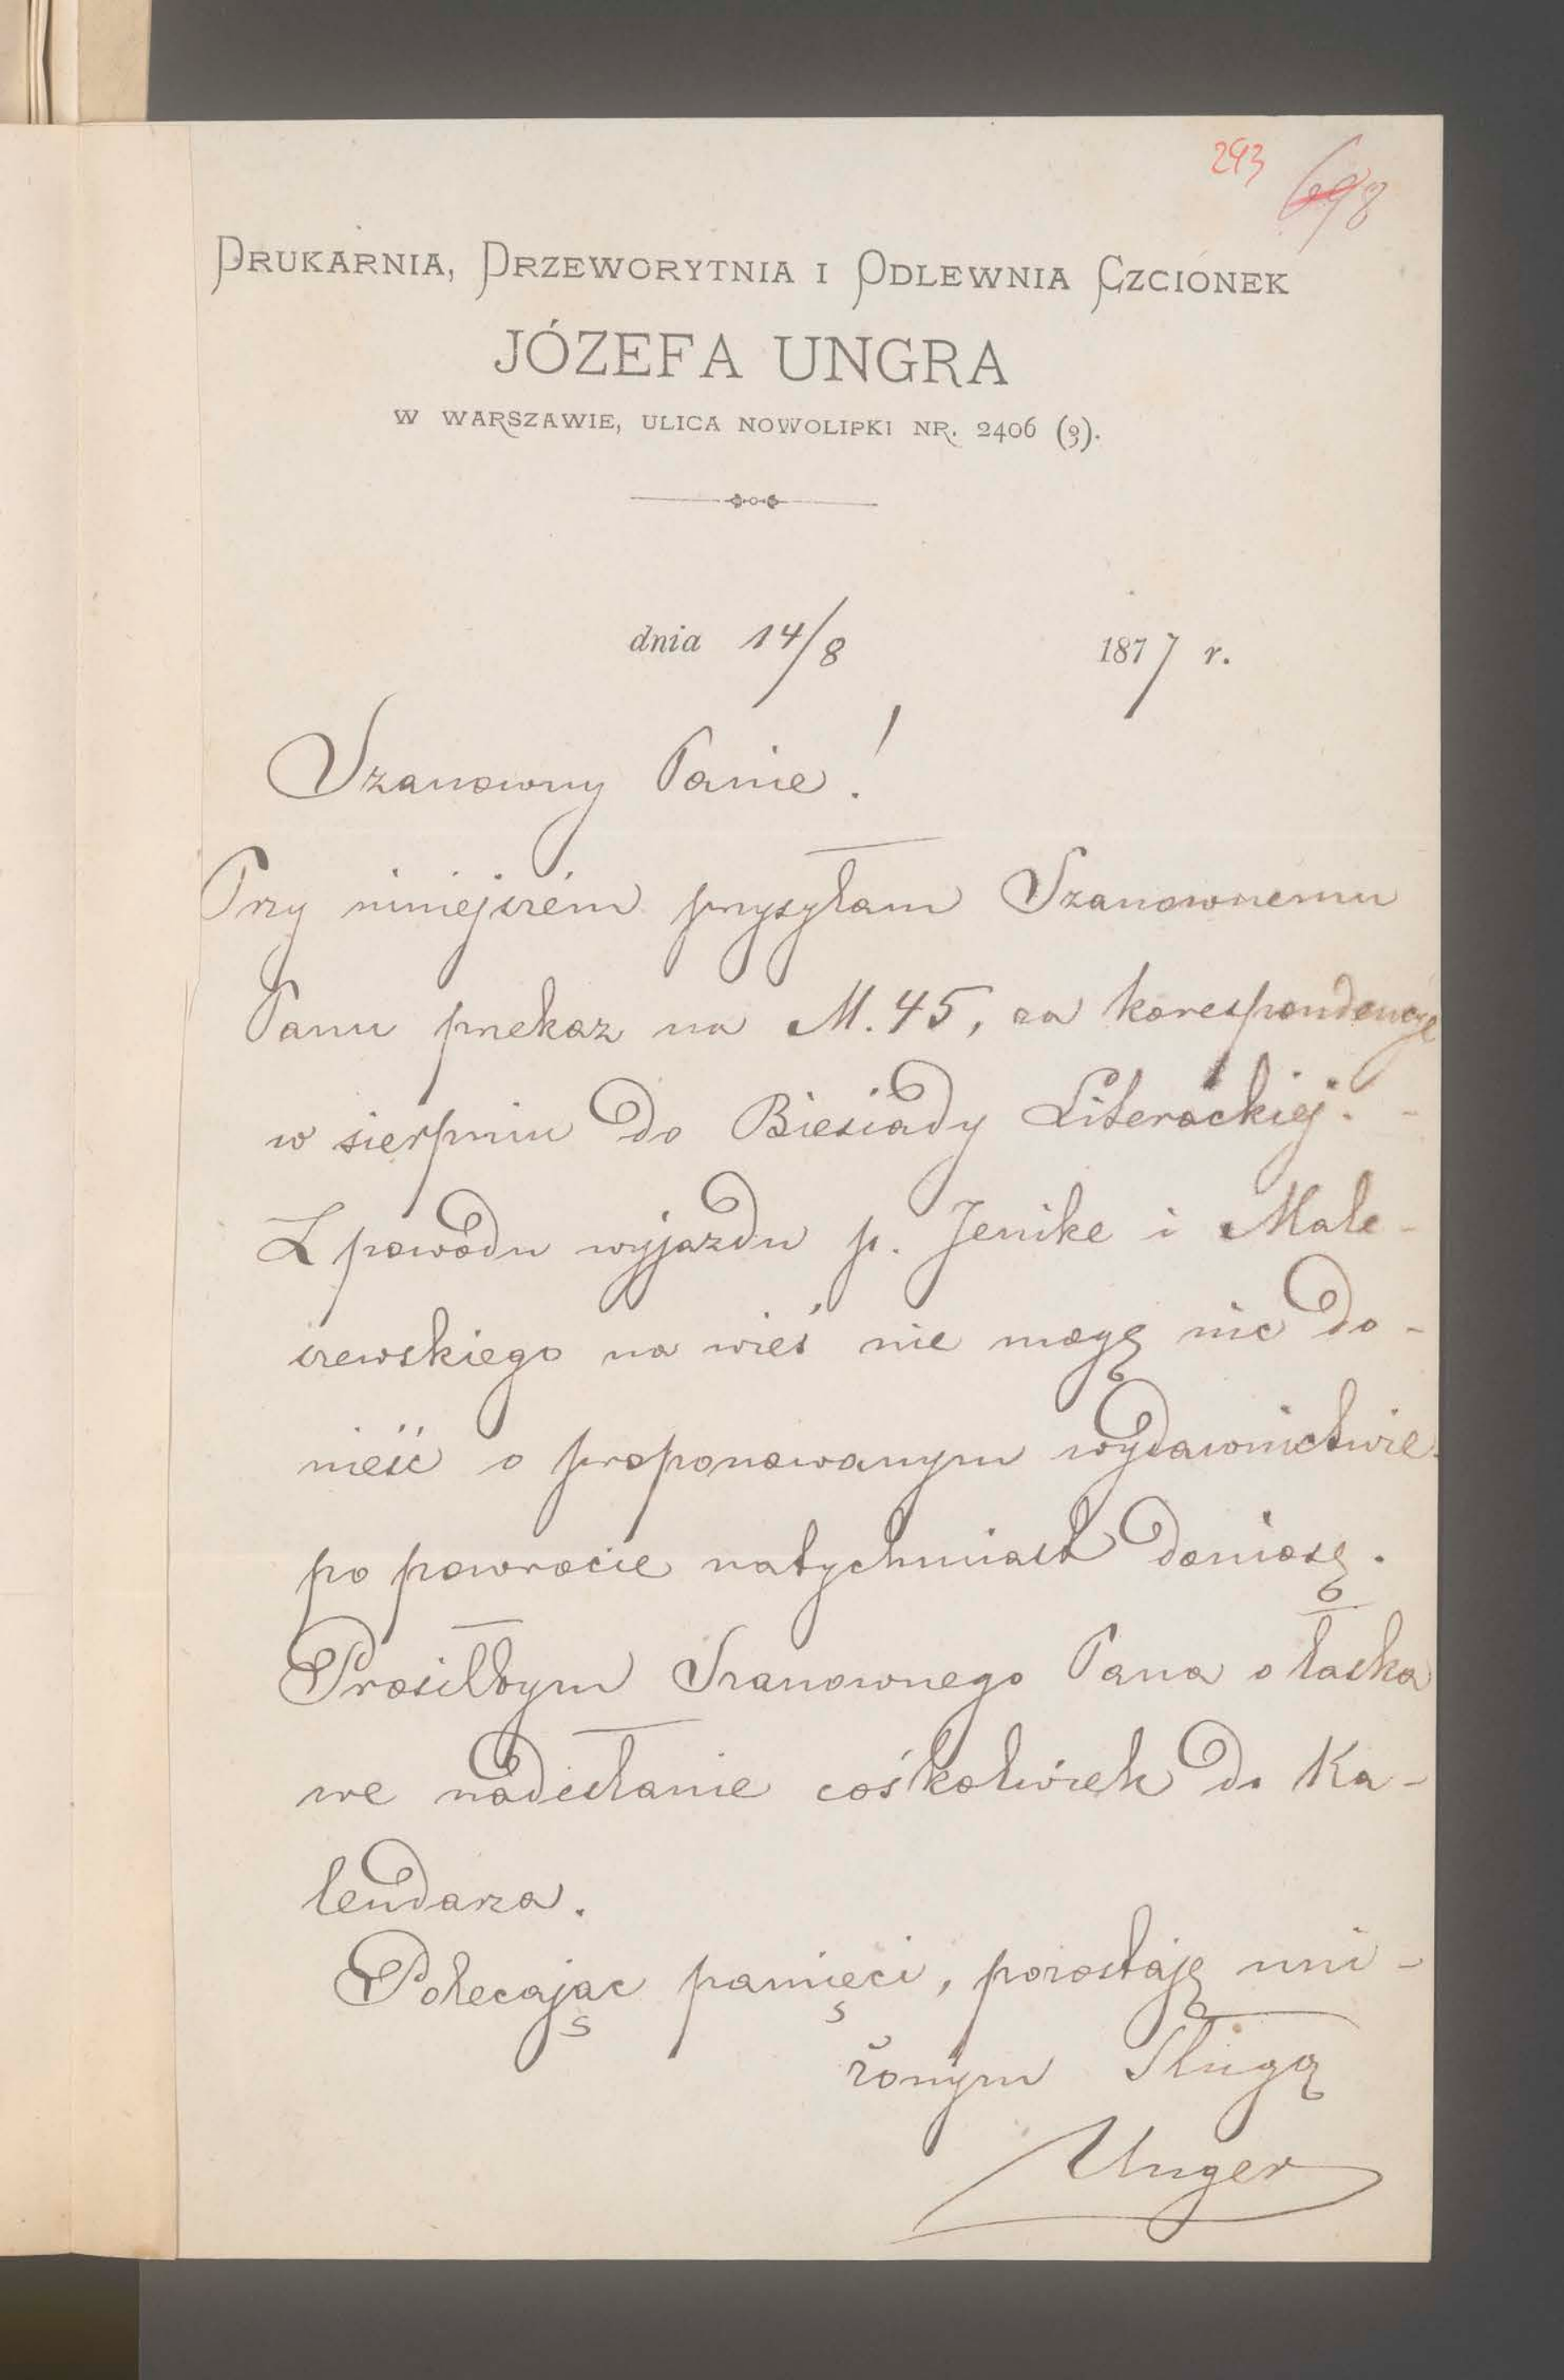 293 698
DRUKARNIA, DRZEWORYTNIA I ODLEWNIA CZCIONEK
JÓZEFA UNGRA
W WARSZAWIE, ULICA NOWOLIPKI NR. 2406 (3).
dnia 14/8 1877 r.
Szanowny Panie!
Przy niniejszém przysyłam Szanownemu
Panu przekaz na M. 45, za korespondencye
w sierpniu do Biesiady Literackiéj. -
Z powodu wyjazdu p. Jenike i Male-
szewskiego na wieś nie mogę nic do-
nieść o proponowanym wydawnictwie.
po powrocie natychmiast doniosę.
Prosiłbym Szanownego Pana o łaska
we nadesłanie cośkolwiek do Ka-
lendarza.
Polecając pamięci, pozostaję uni-
żonym Sługą
Unger